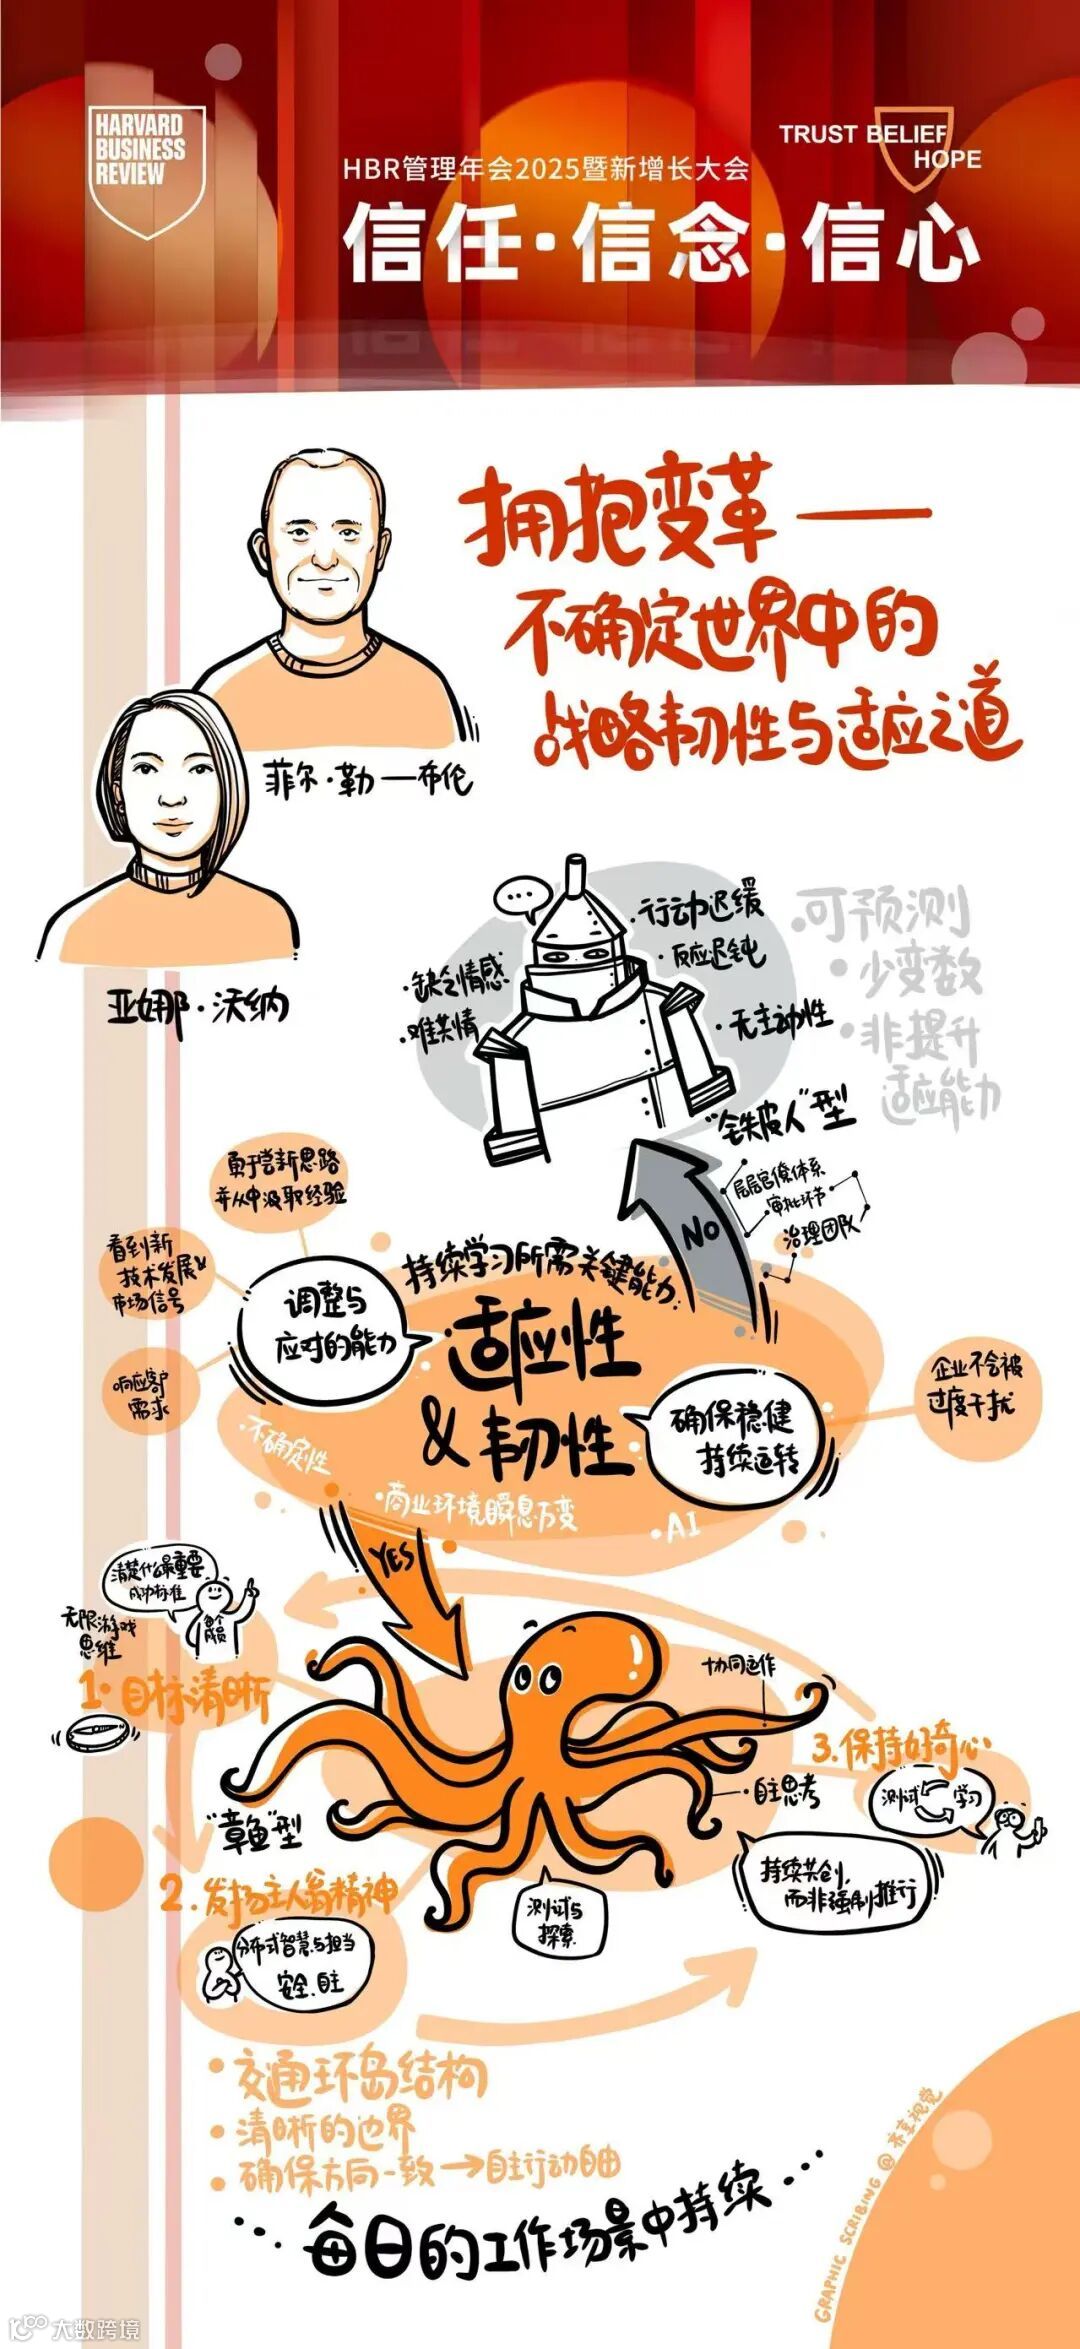 HARVARD
BUSINESS
REVIEW
TRUST BELIEF
HOPE
HBR管理年会2025暨新增长大会
信任·信念·信心
拥抱变革——
不确定世界中的
战略韧性与适应之道
菲尔·勒—布伦
亚娜·沃纳
·行动迟缓
·反应迟钝
·缺乏情感
·难共情
·无主动性
·可预测
·少变数
·非提升
适应能力
"铁皮人"型
层层官僚体系
审批环节
治理团队
NO
勇于尝新思路
并从中汲取经验
看到新
技术发展&
市场信号
响应客户
需求
调整与
应对的能力
持续学习所需关键能力:
适应性
&韧性
确保稳健
持续运转
企业不会被
过度干扰
·不确定性
·商业环境瞬息万变
·AI
YES
清楚什么最重要
成功标准
无限游戏
思维
1.目标清晰
协同运作
3.保持好奇心
测试
学习
·自主思考
"章鱼"型
持续共创,
而非强制推行
2.发扬主人翁精神
测试与
探索
分布式智慧与担当
安全.自主
·交通环岛结构
·清晰的边界
·确保方向一致→自主行动自由
...每日的工作场景中持续...
GRAPHIC SCRIBING @
大数跨境